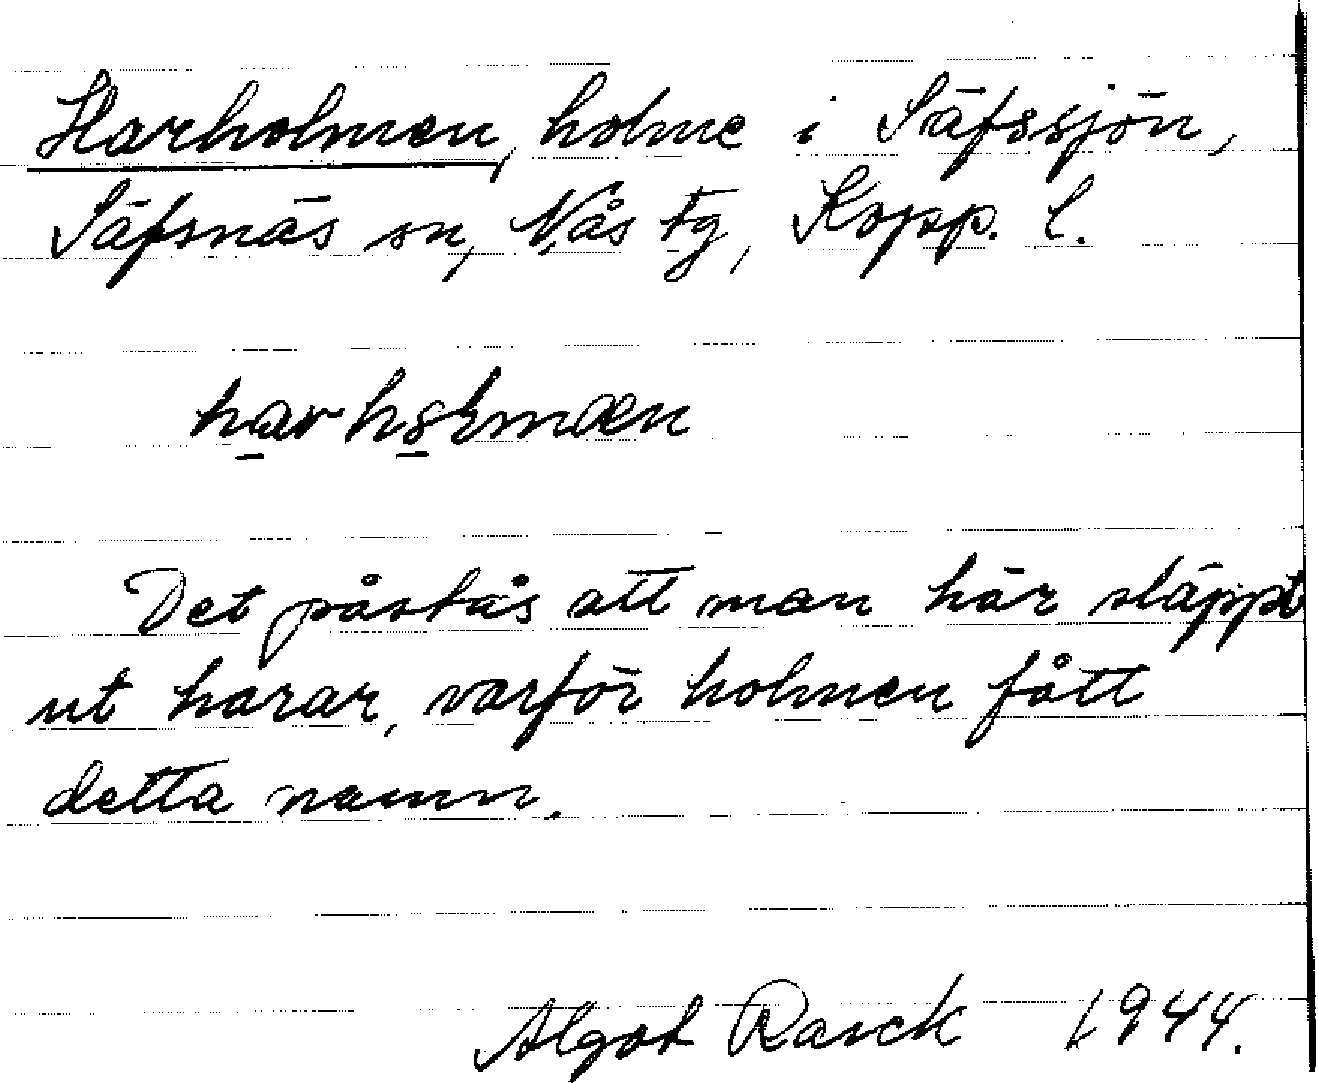 Harholmen, holme i Säfssjön,
Säfsnäs sn, Nås tg, Kopp. l.
harhol̶mæn
Det påstås att man här släppt
ut harar, varför holmen fått
detta namn.
Algot Rasck 1944.